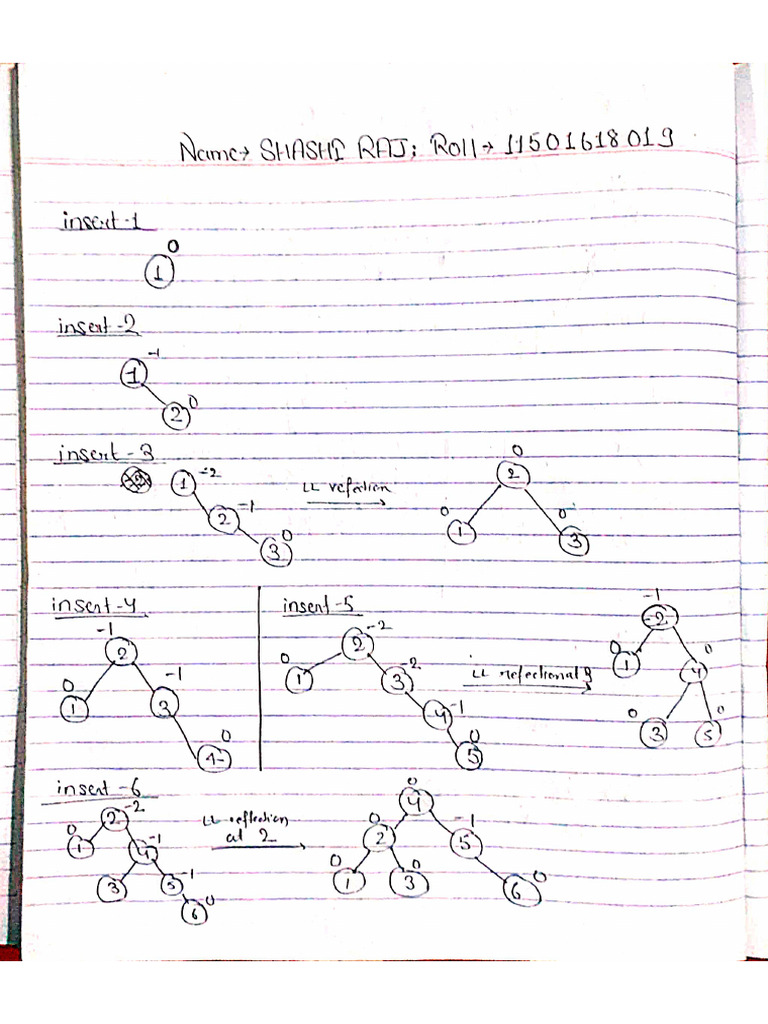 Name→ SHASHI RAJ; Roll→ 11501618019
insert-1
0
1
insert-2
-1
1
2 0
insert-3
1 -2
2 -1
3 0
LL refection
0
2
0 1
0 3
insert-4
-1
2
0
1
-1
3
0
4
insert-5
2 -2
0 1
3 -2
4 -1
0
5
LL refectional 3
-1
2
0
1
0
4
0 3
0
5
insert-6
2 -2
0
1
4 -1
3
5 -1
6 0
LL reflection
at 2
0
4
0
2
-1
5
0
1
0
3
6 0